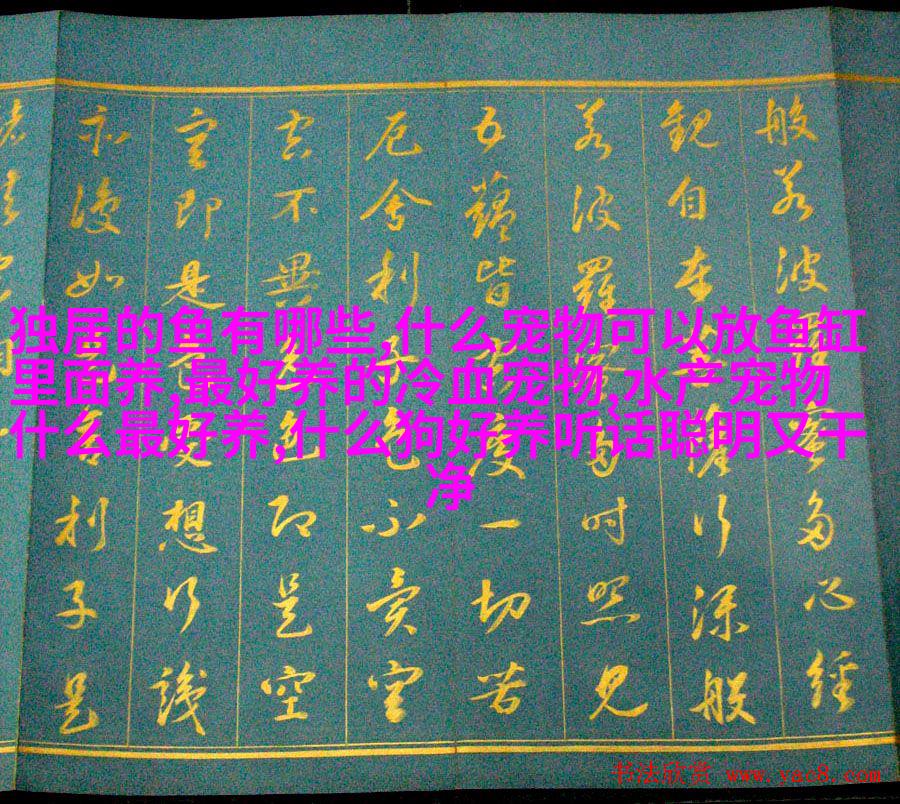 般若波羅蜜多心經
觀自在菩薩行深般
若波羅蜜多時照見
五蘊皆空度一切苦
厄舍利子色不異空
空不異色色即是空
空即是色受想行識
亦復如是舍利子是
独居的鱼有哪些,什么宠物可以放鱼缸
里面养,最好养的冷血宠物,水产宠物
什么最好养,什么狗好养听话聪明又干
净
书法欣赏 www.yac8.com